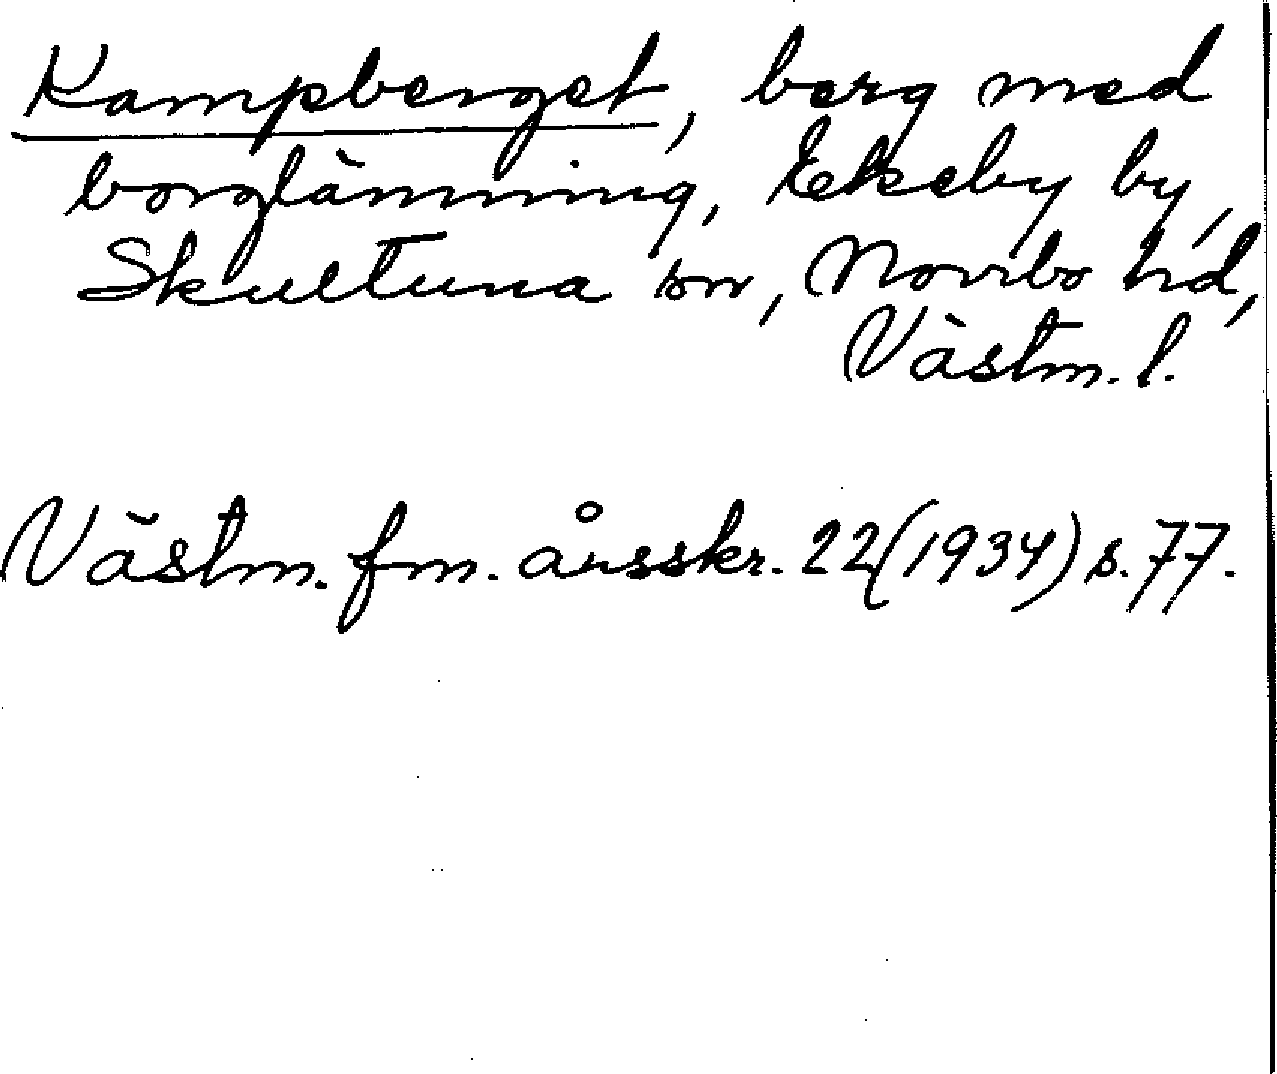 Kampberget, berg med
borglämning, Ekeby by,
Skultuna sn, Norrbo hd,
Västm. l.
Västm. fm. årsskr. 22 (1934) s. 77.